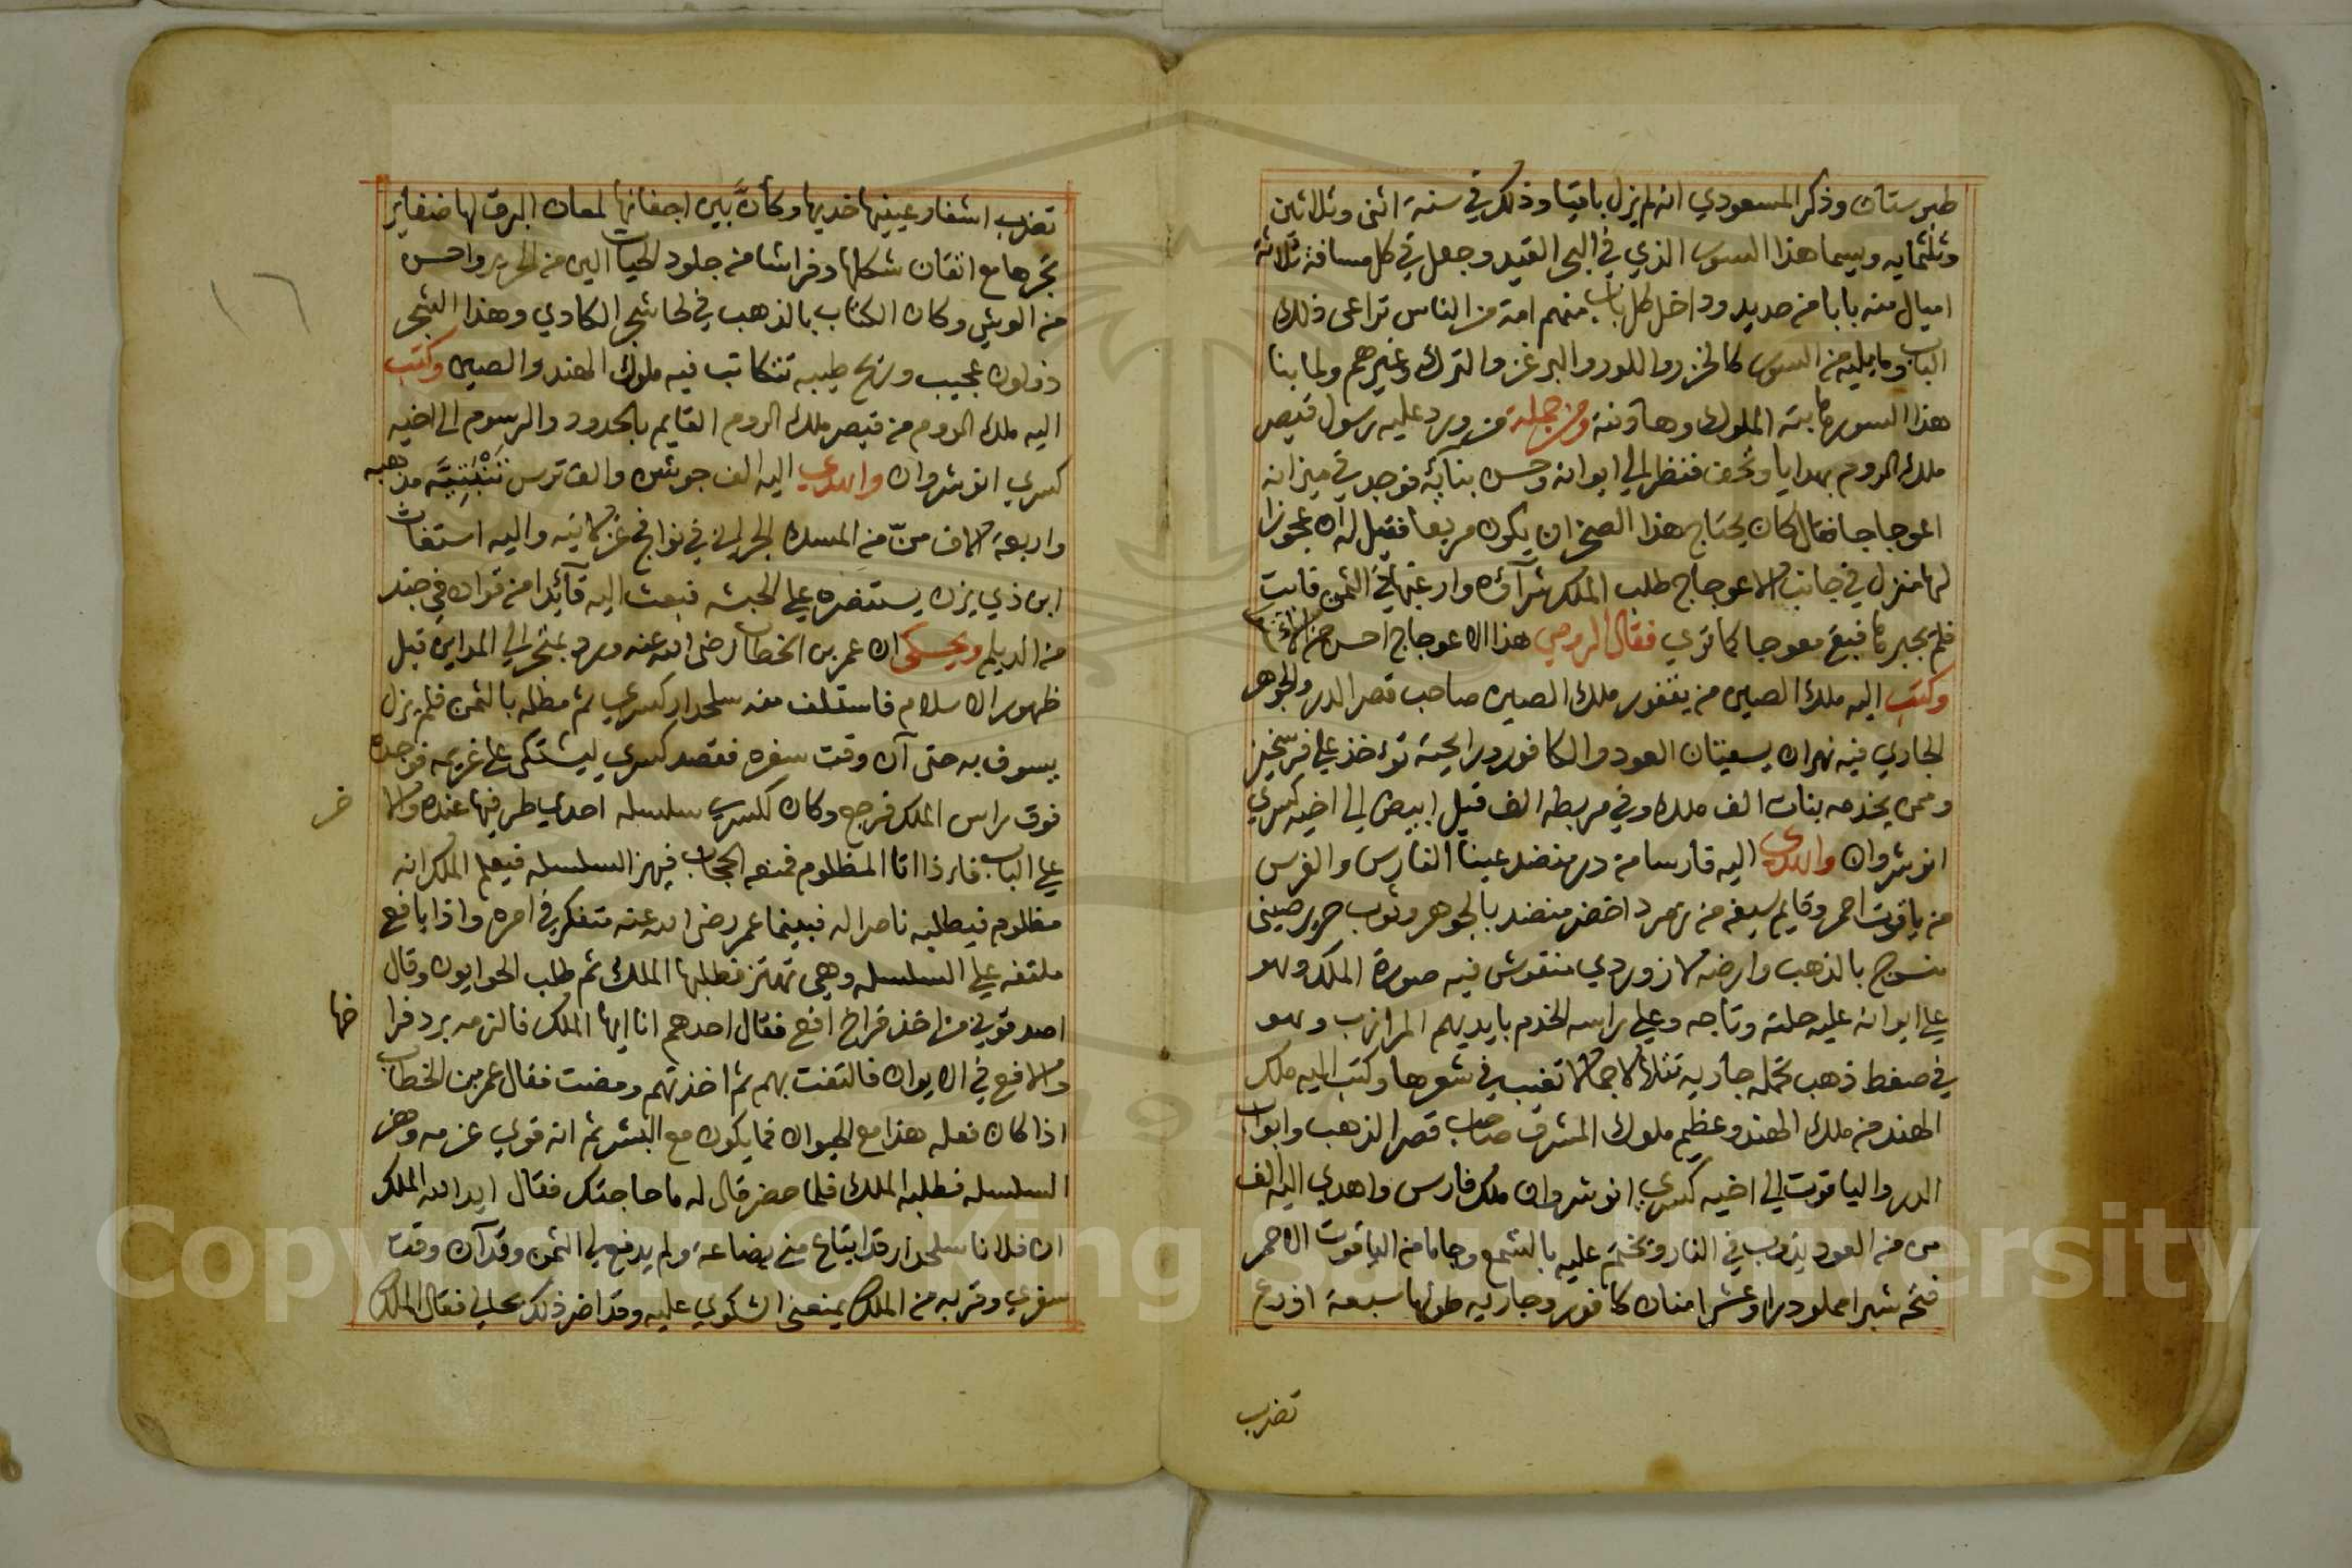 طبرستان وذكر المسعودي انه لم يزل باقيا وذلك في سنة اثنى وثلاثين
وثلثمايه وبينما هذا السور الذي في البحر القيد وجعل في كل مسافة ثلاثة
اميال منه بابا من حديد وداخل كل باب منهم امة من الناس تراعى ذلك
الباب وما يليه من السور كالخزر واللور والبرغز والترك وغيرهم ولما بنا
هذا السور هابته الملوك وهادنته ومن جملة من ورد عليه رسول قيصر
ملك الروم بهدايا وتحف فنظر الي ايوانه وحسن بنائه فوجد في ميزانه
اعوجاجا فقال كان يحتاج هذا الصخر ان يكون مربعا فقيل له ان عجوزا
لها منزل في جانب الاعوجاج طلب الملك شرآؤه وارغبها في الثمن فابت
فلم يجبرها فبقي معوجا كما تري فقال الرومي هذا الاعوجاج احسن من
وكتب اليه ملك الصين من يغفور ملك الصين صاحب قصر الدر والجوهر
الجاري فيه نهران يسقيان العود والكافور درايحته تؤخذ علي فرسخين
وممن يخدمه بنات الف ملك وفي مربطه الف فيل ابيض الي اخيه كسري
انوشروان واهدى اليه فارسا من در منضد عينا الفارس والفرس
من ياقوت احمر وقايم سيفه من زمرد اخضر منضد بالجوهر وثوب حرير صيني
منسوج بالذهب وارضه لازوردي منقوش فيه صورة الملك وهو
علي ايوانه عليه حلته وتاجه وعلي راسه الخدم بايديهم المرازب وهو
في صفط ذهب تحمله جاريه تتلالا جمالا تغيب في شعرها وكتب اليه ملك
الهند من ملك الهند وعظيم ملوك المشرق صاحب قصر الذهب وابواب
الدر والياقوت الي اخيه كسري انوشروان ملك فارس واهدي اليه الف
من من العود يذوب في النار ويختم عليه بالشمع وجاما من الياقوت الاحمر
فتحه شبرا مملو درا وعشرا منان كافور وجاريه طولها سبعة اذرع
تضرب
١٦
تضرب اشفار عينيها خديها وكأن بين اجفانها لمعان البرق لها ضفاير
تجرها مع اتقان شكلها وفراشا من جلود الحيات الين من الحرير واحسن
من الوشي وكان الكتاب بالذهب في لحا شجر الكادي وهذا الشجر
ذولون عجيب وريح طيبه تتكاتب فيه ملوك الهند والصين وكتب
اليه ملك الروم من قيصر ملك الروم القايم بالحدود والرسوم الي اخيه
كسري انوشروان واهدي اليه الف جوشن والف ترس مذهبه
واربعة الاف من من المسك في نوافج غزلانيه واليه استغاث
ابن ذي يزن يستنصره علي الحبشه فبعث اليه قآئدا من قواده في جند
من الديلم ويحكى ان عمر بن الخطاب رضى الله عنه ورد بمتجر الي المداين قبل
ظهور الاسلام فاستلف منه سلحدار كسري ثم مطله بالثمن فلم يزل
يسوف به حتى آن وقت سفره فقصد كسري ليشتكى على غريمه فوجده
فوق راس الملك فرجع وكان لكسري سلسله احدي طرفيها عنده والا خر
علي الباب فاذا اتا المظلوم فمنعه الحجاب فيهز السلسله فيعلم الملك انه
مظلوم فيطلبه ناصرا له فبينما عمر رضى الله عنه متفكر في امره واذا بافع
ملتفه علي السلسله وهي تهتز فطلبها الملك ثم طلب الحوايون وقال
اصدقوني من اخذ فراخ افع فقال احدهم انا ايها الملك فالزمه برد فرا خها
والافع في الايوان فالتفت بهم ثم اخذتهم ومضت فقال عمر بن الخطاب
اذا كان فعله هذا مع الحيوان فما يكون مع البشر ثم انه قوي عزمه وهز
السلسله فطلبه الملك فلما حضر قال له ما حاجتك فقال ايد الله الملك
ان فلانا سلحدار قد ابتاع مني بضاعة ولم يدفع لي الثمن وقد آن وقت
سفري وقربه من الملك يمنعني الشكوي عليه وقد اضر ذلك بحالي فقال الملك
Copyright © King Saud University
1957